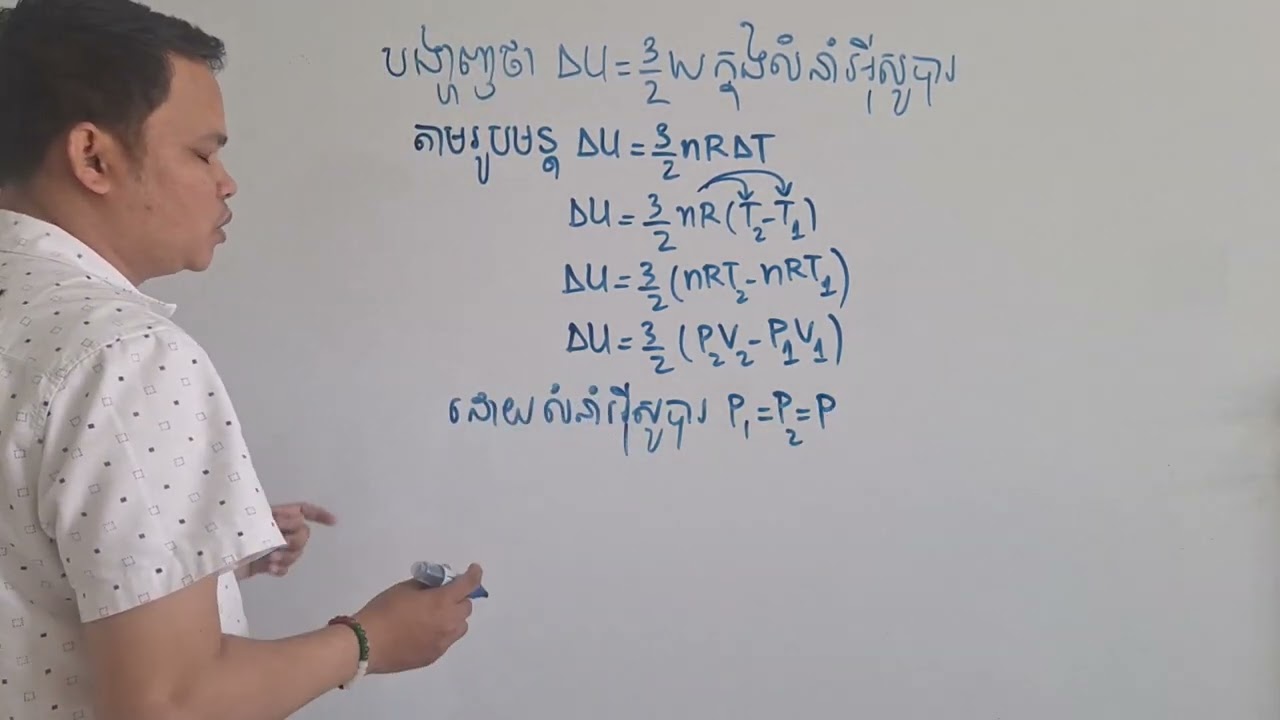 បង្ហាញថា ΔU = 3/2 W ក្នុងលំនាំអ៊ីសូបារ
តាមរូបមន្ត ΔU = 3/2 nRΔT
ΔU = 3/2 nR(T₂-T₁)
ΔU = 3/2 (nRT₂-nRT₁)
ΔU = 3/2 (P₂V₂-P₁V₁)
ដោយលំនាំអ៊ីសូបារ P₁=P₂=P